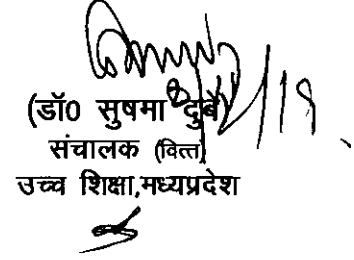 (डॉ0 सुषमा दुबे)
संचालक (वित्त)
उच्च शिक्षा,मध्यप्रदेश